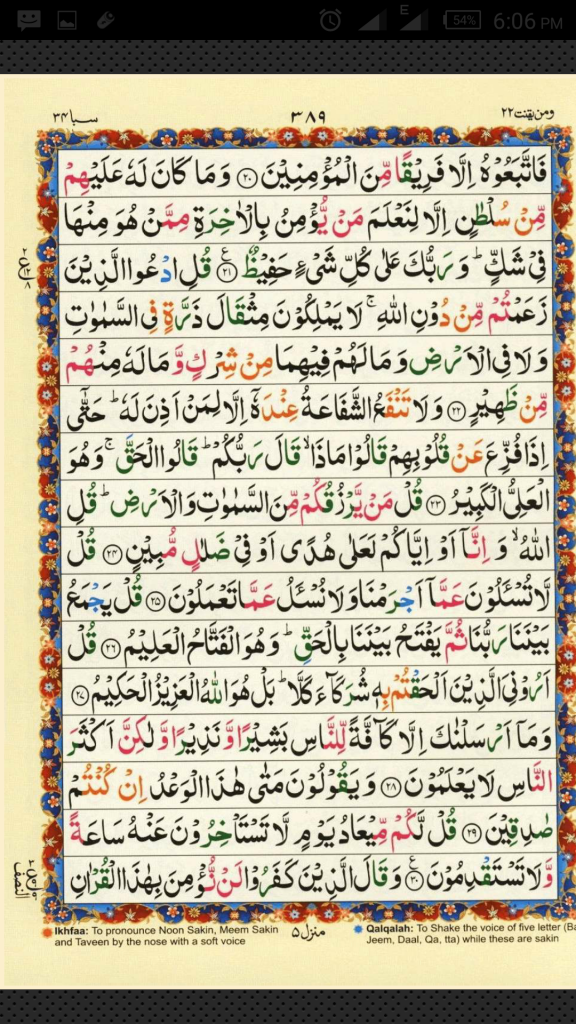 E 54% 6:06 PM
ومن يقنت ٢٢ ٣٨٩ سبا ٣٤
فَاتَّبَعُوْهُ اِلَّا فَرِيْقًا مِّنَ الْمُؤْمِنِيْنَ ۝٢٠ وَ مَا كَانَ لَهٗ عَلَيْهِمْ
مِّنْ سُلْطٰنٍ اِلَّا لِنَعْلَمَ مَنْ يُّؤْمِنُ بِالْاٰخِرَةِ مِمَّنْ هُوَ مِنْهَا
فِيْ شَكٍّ ؕ وَ رَبُّكَ عَلٰى كُلِّ شَيْءٍ حَفِيْظٌ ۝٢١ ع قُلِ ادْعُوا الَّذِيْنَ
زَعَمْتُمْ مِّنْ دُوْنِ اللّٰهِ ۚ لَا يَمْلِكُوْنَ مِثْقَالَ ذَرَّةٍ فِي السَّمٰوٰتِ
وَ لَا فِي الْاَرْضِ وَ مَا لَهُمْ فِيْهِمَا مِنْ شِرْكٍ وَّ مَا لَهٗ مِنْهُمْ
مِّنْ ظَهِيْرٍ ۝٢٢ وَ لَا تَنْفَعُ الشَّفَاعَةُ عِنْدَهٗۤ اِلَّا لِمَنْ اَذِنَ لَهٗ ؕ حَتّٰۤى
اِذَا فُزِّعَ عَنْ قُلُوْبِهِمْ قَالُوْا مَاذَا ۙ قَالَ رَبُّكُمْ ؕ قَالُوا الْحَقَّ ۚ وَ هُوَ
الْعَلِيُّ الْكَبِيْرُ ۝٢٣ قُلْ مَنْ يَّرْزُقُكُمْ مِّنَ السَّمٰوٰتِ وَ الْاَرْضِ ؕ قُلِ
اللّٰهُ ۙ وَ اِنَّاۤ اَوْ اِيَّاكُمْ لَعَلٰى هُدًى اَوْ فِيْ ضَلٰلٍ مُّبِيْنٍ ۝٢٤ قُلْ
لَّا تُسْـَٔلُوْنَ عَمَّاۤ اَجْرَمْنَا وَ لَا نُسْـَٔلُ عَمَّا تَعْمَلُوْنَ ۝٢٥ قُلْ يَجْمَعُ
بَيْنَنَا رَبُّنَا ثُمَّ يَفْتَحُ بَيْنَنَا بِالْحَقِّ ؕ وَ هُوَ الْفَتَّاحُ الْعَلِيْمُ ۝٢٦ قُلْ
اَرُوْنِيَ الَّذِيْنَ اَلْحَقْتُمْ بِهٖ شُرَكَآءَ كَلَّا ؕ بَلْ هُوَ اللّٰهُ الْعَزِيْزُ الْحَكِيْمُ ۝٢٧
وَ مَاۤ اَرْسَلْنٰكَ اِلَّا كَآفَّةً لِّلنَّاسِ بَشِيْرًا وَّ نَذِيْرًا وَّ لٰكِنَّ اَكْثَرَ
النَّاسِ لَا يَعْلَمُوْنَ ۝٢٨ وَ يَقُوْلُوْنَ مَتٰى هٰذَا الْوَعْدُ اِنْ كُنْتُمْ
صٰدِقِيْنَ ۝٢٩ قُلْ لَّكُمْ مِّيْعَادُ يَوْمٍ لَّا تَسْتَاْخِرُوْنَ عَنْهُ سَاعَةً
وَّ لَا تَسْتَقْدِمُوْنَ ۝٣٠ ع وَ قَالَ الَّذِيْنَ كَفَرُوْا لَنْ نُّؤْمِنَ بِهٰذَا الْقُرْاٰنِ
منزل ۵
Ikhfaa: To pronounce Noon Sakin, Meem Sakin
and Taveen by the nose with a soft voice
Qalqalah: To Shake the voice of five letter (Ba
Jeem, Daal, Qa, tta) while these are sakin